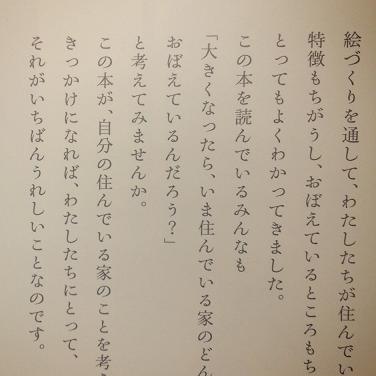 絵づくりを通して、わたしたちが住んでい
特徴もちがうし、おぼえているところもち
とってもよくわかってきました。
この本を読んでいるみんなも
「大きくなったら、いま住んでいる家のどん
おぼえているんだろう？」
と考えてみませんか。
この本が、自分の住んでいる家のことを考
きっかけになれば、わたしたちにとって、
それがいちばんうれしいことなのです。